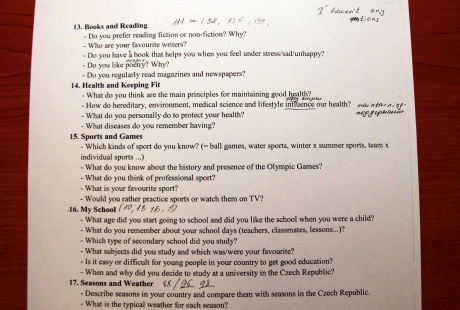 I haven't any
13. Books and Reading
- Do you prefer reading fiction or non-fiction? Why?
- Who are your favourite writers?
- Do you have a book that helps you when you feel under stress/sad/unhappy?
- Do you like poetry? Why?
- Do you regularly read magazines and newspapers?
14. Health and Keeping Fit
- What do you think are the main principles for maintaining good health?
- How do hereditary, environment, medical science and lifestyle influence our health?
- What do you personally do to protect your health?
- What diseases do you remember having?
15. Sports and Games
- Which kinds of sport do you know? (= ball games, water sports, winter x summer sports, team x
individual sports ...)
- What do you know about the history and presence of the Olympic Games?
- What do you think of professional sport?
- What is your favourite sport?
- Would you rather practice sports or watch them on TV?
16. My School
- What age did you start going to school and did you like the school when you were a child?
- What do you remember your school days (teachers, classmates, lessons...)?
- Which type of secondary school did you study?
- What subjects did you study and which was/were your favourite?
- Is it easy or difficult for young people in your country to get good education?
- When and why did you decide to study at a university in the Czech Republic?
17. Seasons and Weather 88 / 96 98
- Describe seasons in your country and compare them with seasons in the Czech Republic.
- What is the typical weather for each season?